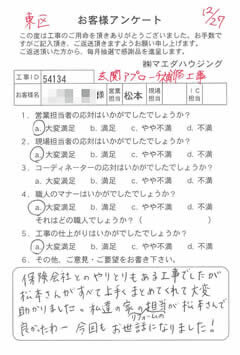 東区
12/27
お客様アンケート
この度は工事のご用命を頂きありがとうございました。お手数で
すがご記入頂き、ご返送頂きますようお願い申し上げます。
ご返送頂いた方から、毎月抽選で感謝品を進呈します。
㈱マエダハウジング
工事ID 54134 玄関アプローチ補修工事
お客様名 様 営業担当 松本 現場担当 工事担当 IC
1．営業担当者の応対はいかがでしたでしょうか？
a.大変満足 b.満足 c.やや不満 d.不満
2．現場担当者の応対はいかがでしたでしょうか？
a.大変満足 b.満足 c.やや不満 d.不満
3．コーディネーターの応対はいかがでしたでしょうか？
a.大変満足 b.満足 c.やや不満 d.不満
4．職人のマナーはいかがでしたでしょうか？
a.大変満足 b.満足 c.やや不満 d.不満
それはどの職人でしょうか？（ ）
5．工事の仕上がりはいかがでしたでしょうか？
a.大変満足 b.満足 c.やや不満 d.不満
6．その他、ご意見・ご要望をお書き下さい。
保険会社とのやりとりもある工事でしたが
松本さんがすべて上手くまとめてくれて大変
助かりました。私達の家のリフォームの担当が松本さんで
良かったわー 今回もお世話になりました！